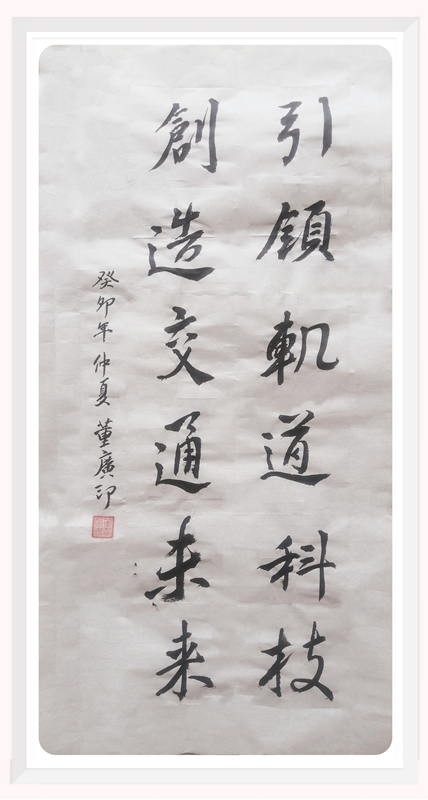 引領軌道科技
創造交通未来
癸卯年仲夏董廣印